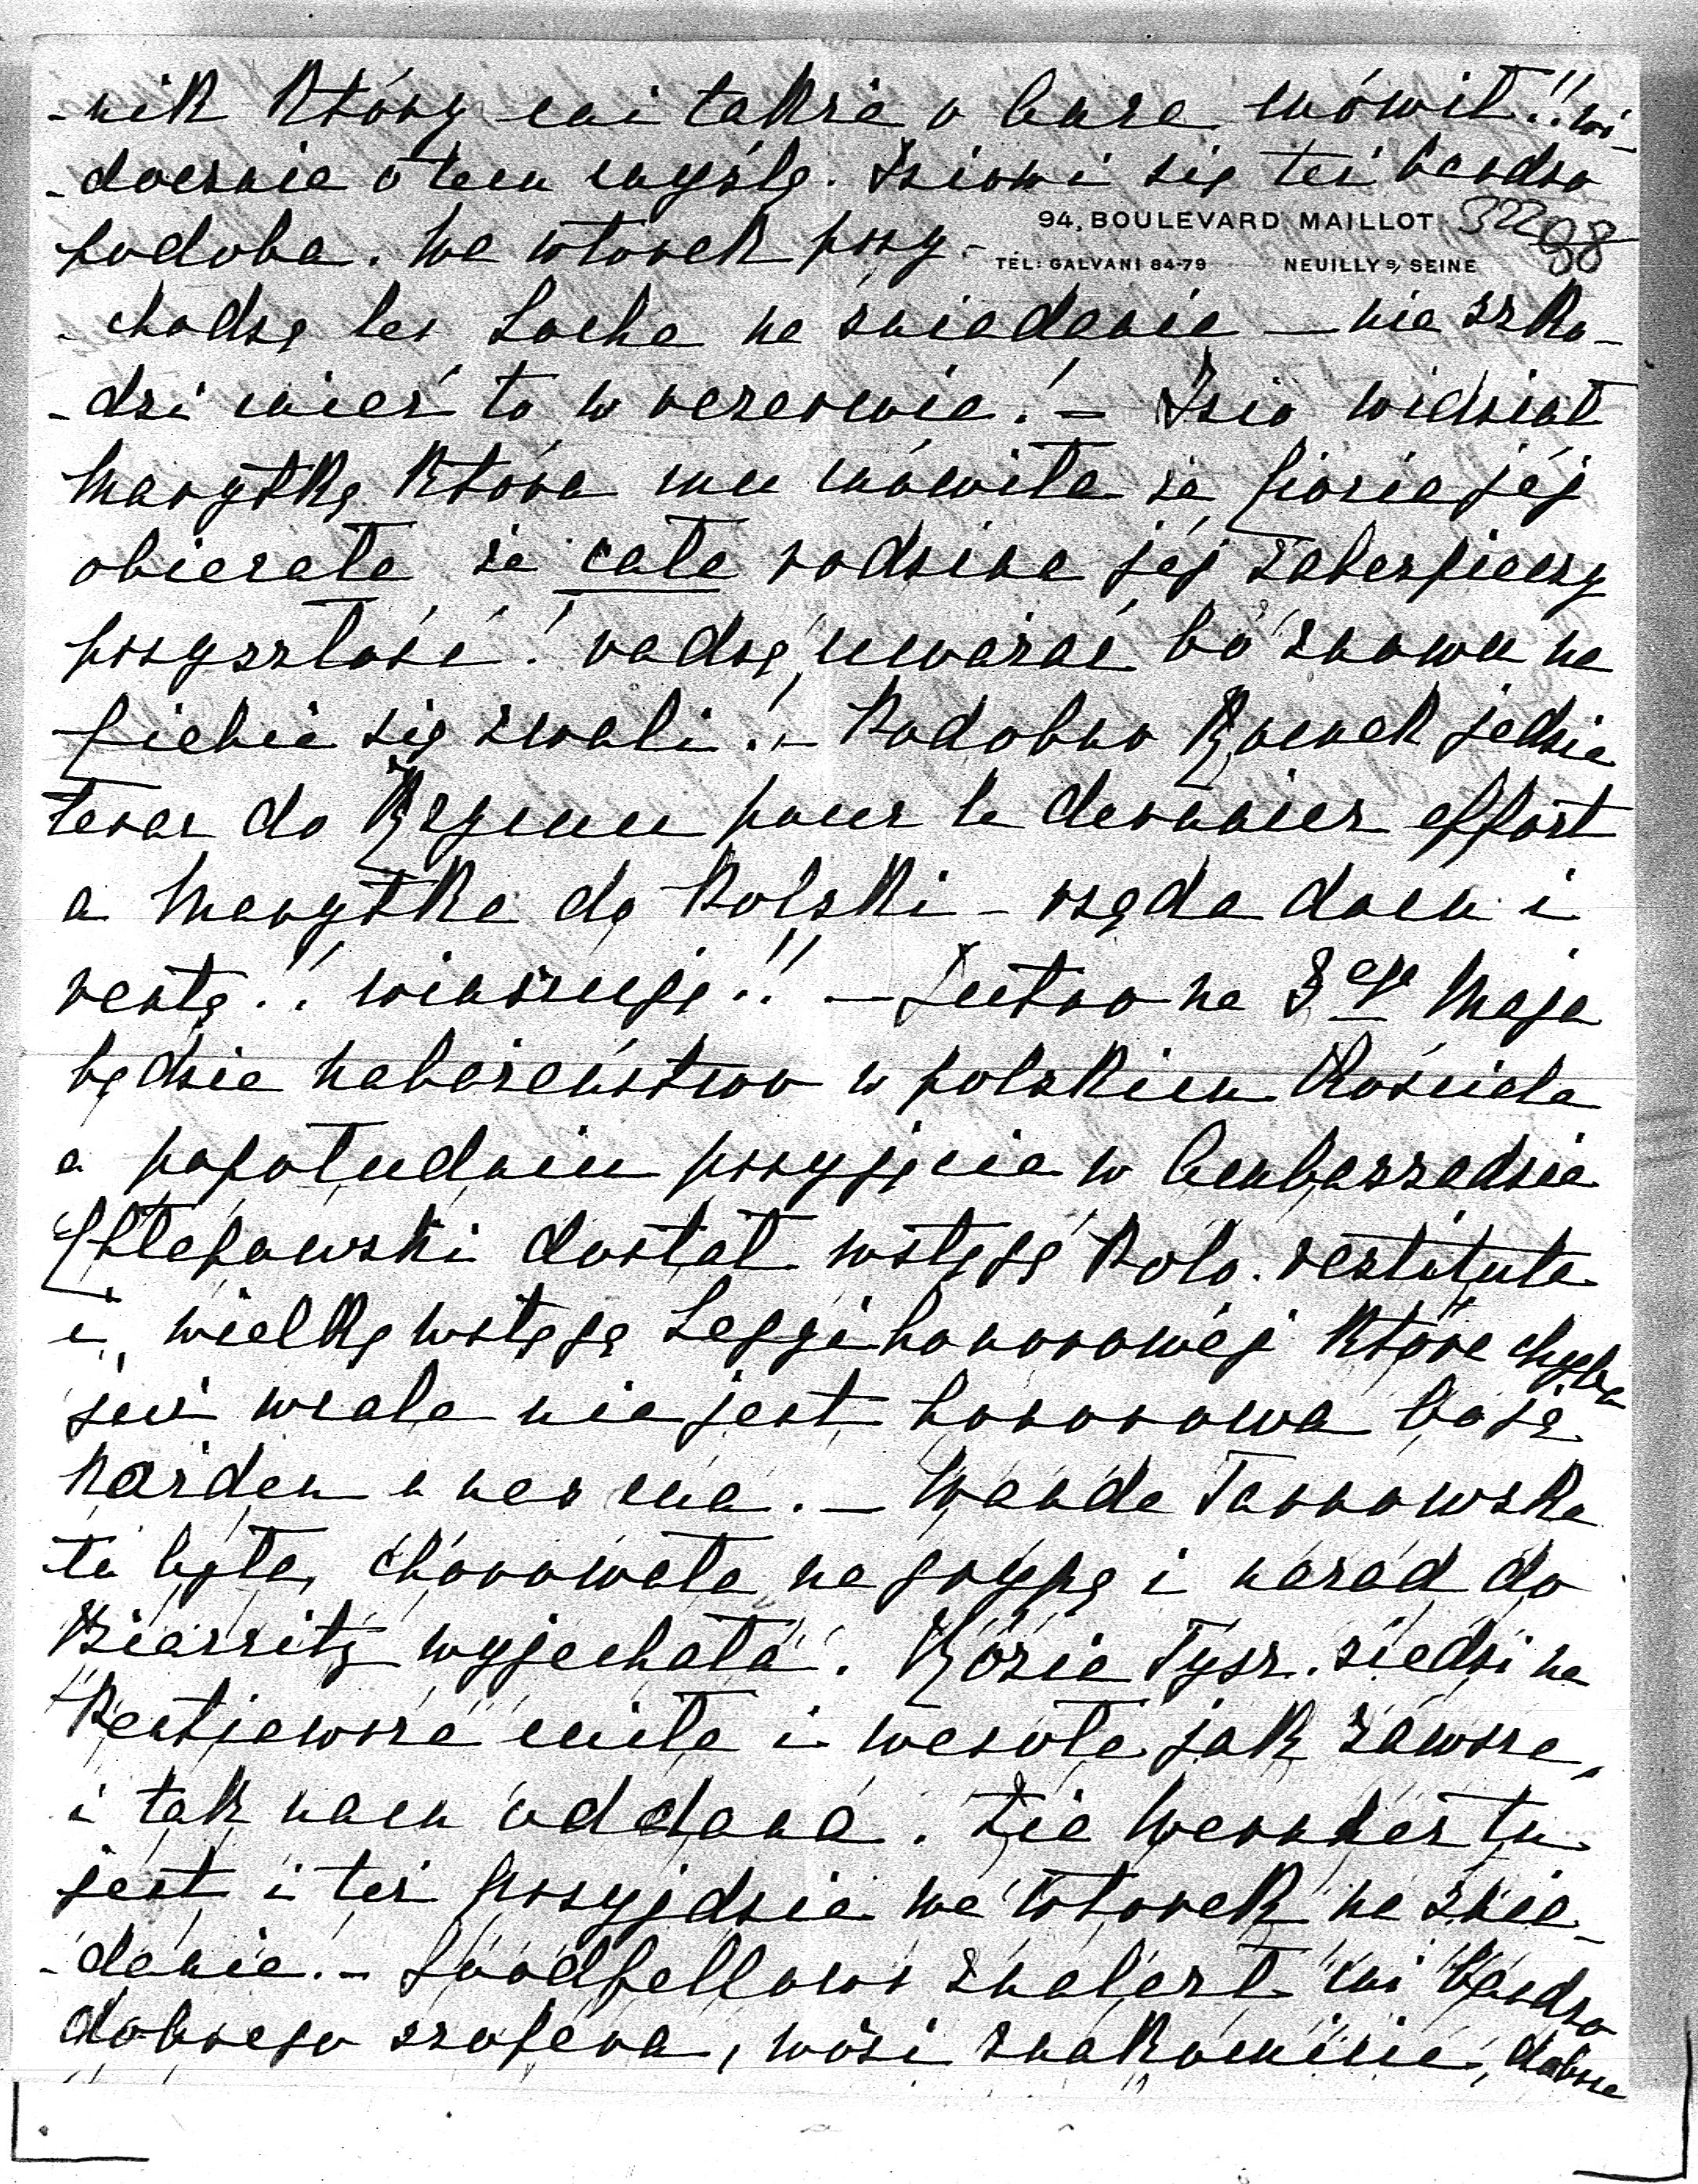 -nik który mi także o huze mówił!! wi-
-docznie o tem myślę. Izio mi się też bardzo
94, BOULEVARD MAILLOT 322 98
podoba. We wtorek przy-
TÉL: GALVANI 84-79 NEUILLY S/ SEINE
-chodzą les na śniadanie — nie szko-
-dzi mieć to w rezerwie! — Izio widział
Marytkę która mu mówiła że jej
obiecała że całą rodzinę jej zabezpieczy
przyszłość! radzę uważać bo znowu na
Ciebie się zwali! — Podobno jedzie
teraz do Rzymu pour le dernier effort
a Marytka do Polski — rząda dom i
rentę!! winszuję!! — Jutro na 3ego Maja
będzie nabożeństwo w polskiem Kościele
a popołudniu przyjęcie w Ambassadzie
Chłapowski dostał wstęgę Polo. restituta
i wielką wstęgę Legji honorowéj która chyba
już wcale nie jest honorowa bo ją
każden u nas ma. — Wanda Tarnowska
tu była, chorowała na grypę i nazad do
Biarritz wyjechała. Rózia Tysz. siedzi na
miła i wesoła jak zawsze,
i tak nam oddana. Zia tu
jest i też przyjdzie we wtorek na śnia-
-danie. — Goodfellows znalazł mi bardzo
dobrego szofera, wozi znakomicie, dobrze